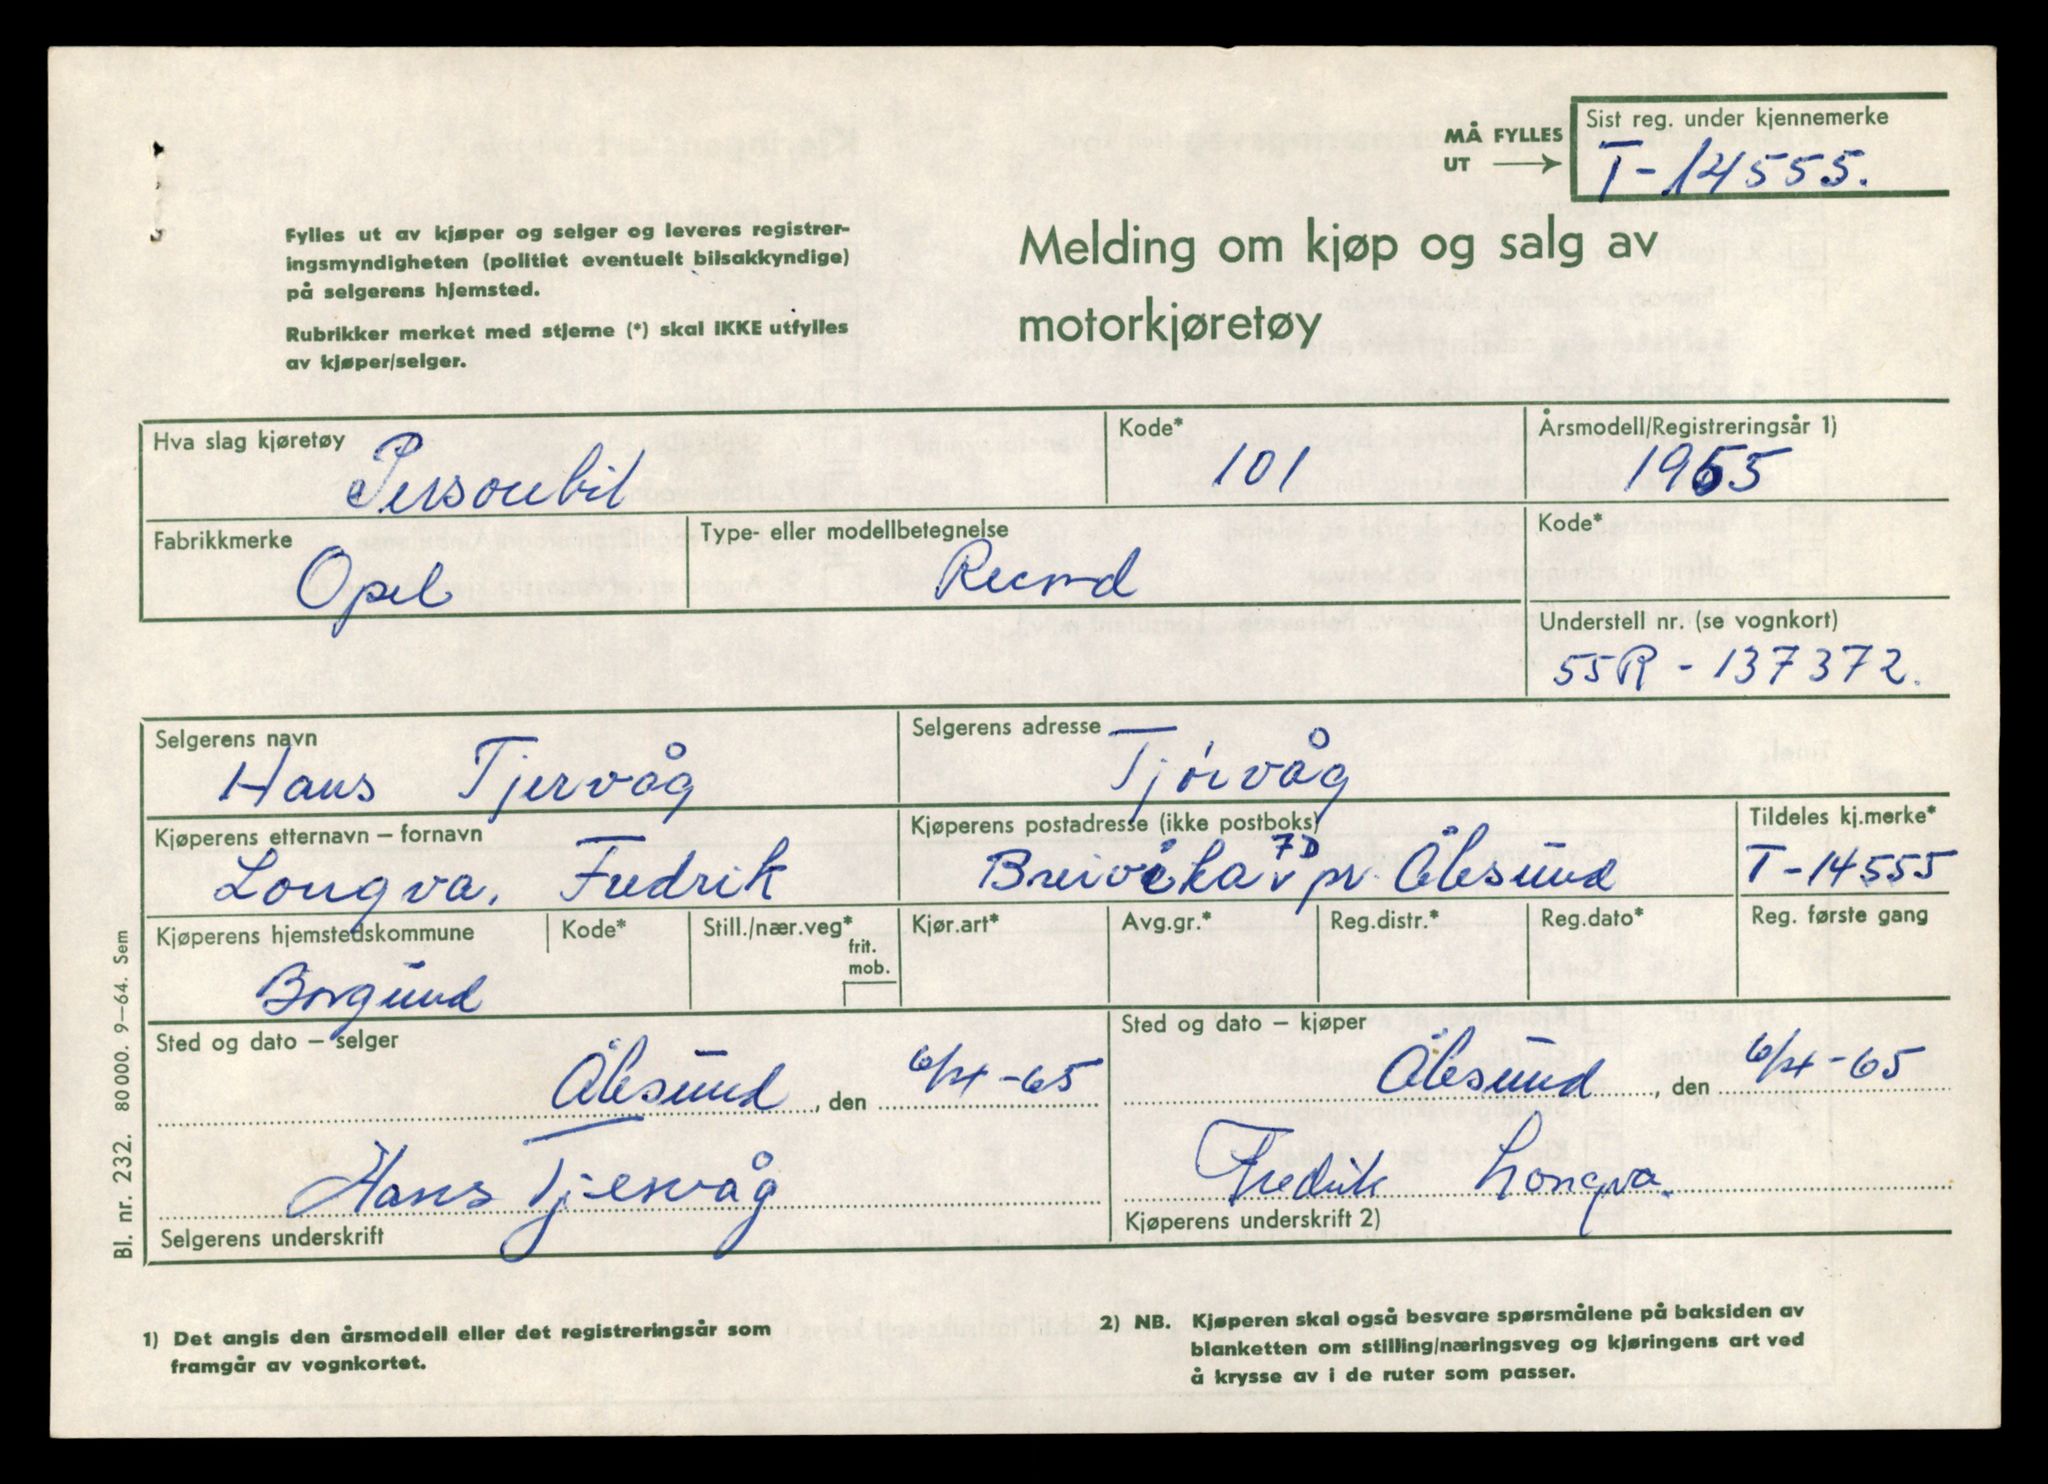 MÅ FYLLES
UT →
Sist reg. under kjennemerke
T-14555.
Fylles ut av kjøper og selger og leveres registrer-
ingsmyndigheten (politiet eventuelt bilsakkyndige)
på selgerens hjemsted.
Rubrikker merket med stjerne (*) skal IKKE utfylles
av kjøper/selger.
Melding om kjøp og salg av
motorkjøretøy
Hva slag kjøretøy
Personbil
Kode*
101
Årsmodell/Registreringsår 1)
1955
Fabrikkmerke
Opel
Type- eller modellbetegnelse
Record
Kode*
Understell nr. (se vognkort)
55R - 137372.
Selgerens navn
Hans Tjervåg
Selgerens adresse
Tjørvåg
Kjøperens etternavn – fornavn
Longva, Fredrik
Kjøperens postadresse (ikke postboks)
Breivika 7D pr. Ålesund
Tildeles kj.merke*
T-14555
Kjøperens hjemstedskommune
Borgund
Kode*
Still./nær.veg*
frit.
mob.
Kjør.art*
Avg.gr.*
Reg.distr.*
Reg.dato*
Reg. første gang
Sted og dato – selger
Ålesund, den 6/IX-65
Hans Tjervåg
Selgerens underskrift
Sted og dato – kjøper
Ålesund, den 6/IX-65
Fredrik Longva.
Kjøperens underskrift 2)
Bl. nr. 232. 80 000. 9–64. Sem
1) Det angis den årsmodell eller det registreringsår som
framgår av vognkortet.
2) NB. Kjøperen skal også besvare spørsmålene på baksiden av
blanketten om stilling/næringsveg og kjøringens art ved
å krysse av i de ruter som passer.